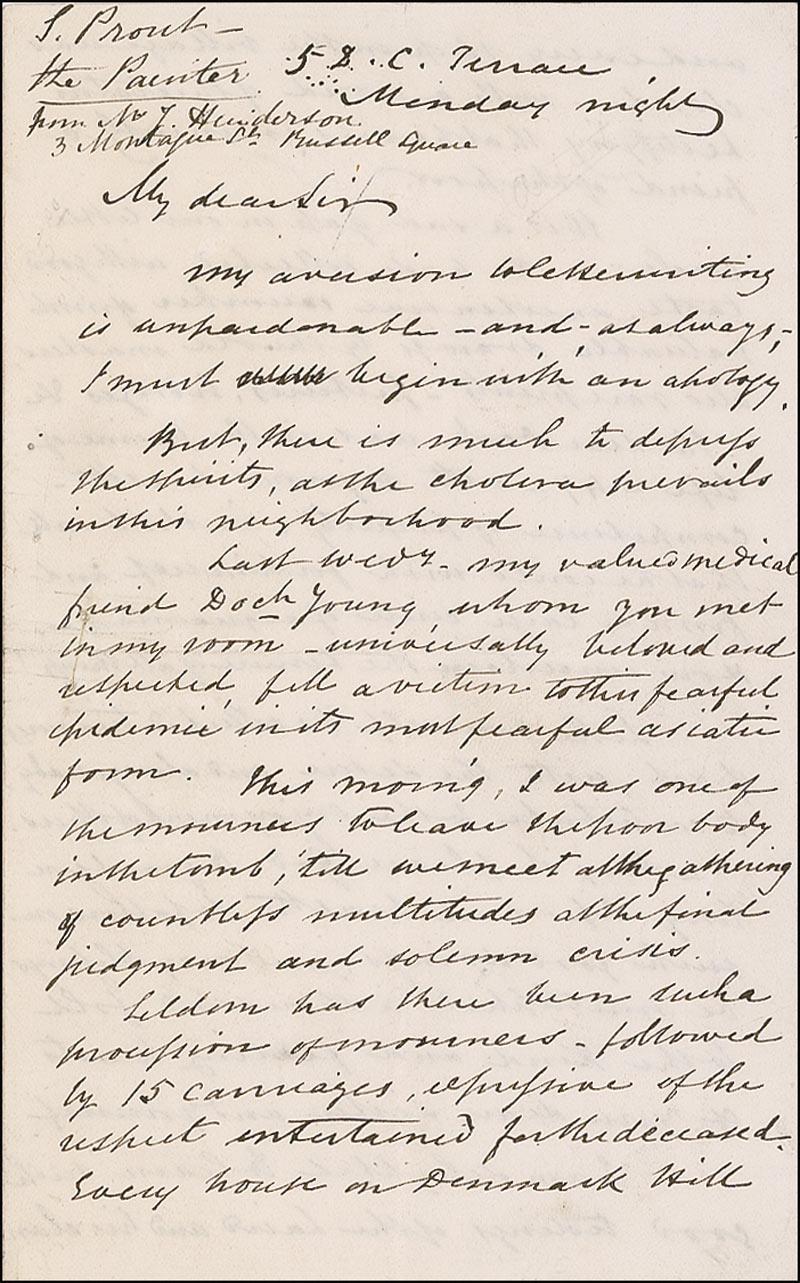 S. Prout -
the Painter
5 D. C. Terrace
Monday night
from Mr J. Henderson
3 Montague St. Russell Square
My dear Sir
My aversion to letter writing
is unpardonable - and -, as always, -
I must begin with an apology.
But, there is much to depress
the spirits, as the cholera prevails
in this neighborhood.
Last Wedy - my valued medical
friend Doctr Young, whom you met
in my room - universally beloved and
respected, fell a victim to this fearful
epidemic, in its most fearful asiatic
form. This morng, I was one of
the mourners to leave the poor body
in the tomb, 'till we meet at the gathering
of countless multitudes at the final
judgment and solemn crisis.
Seldom has there been such a
procession of mourners - followed
by 15 carriages, expressive of the
respect entertained for the deceased.
Every house on Denmark Hill